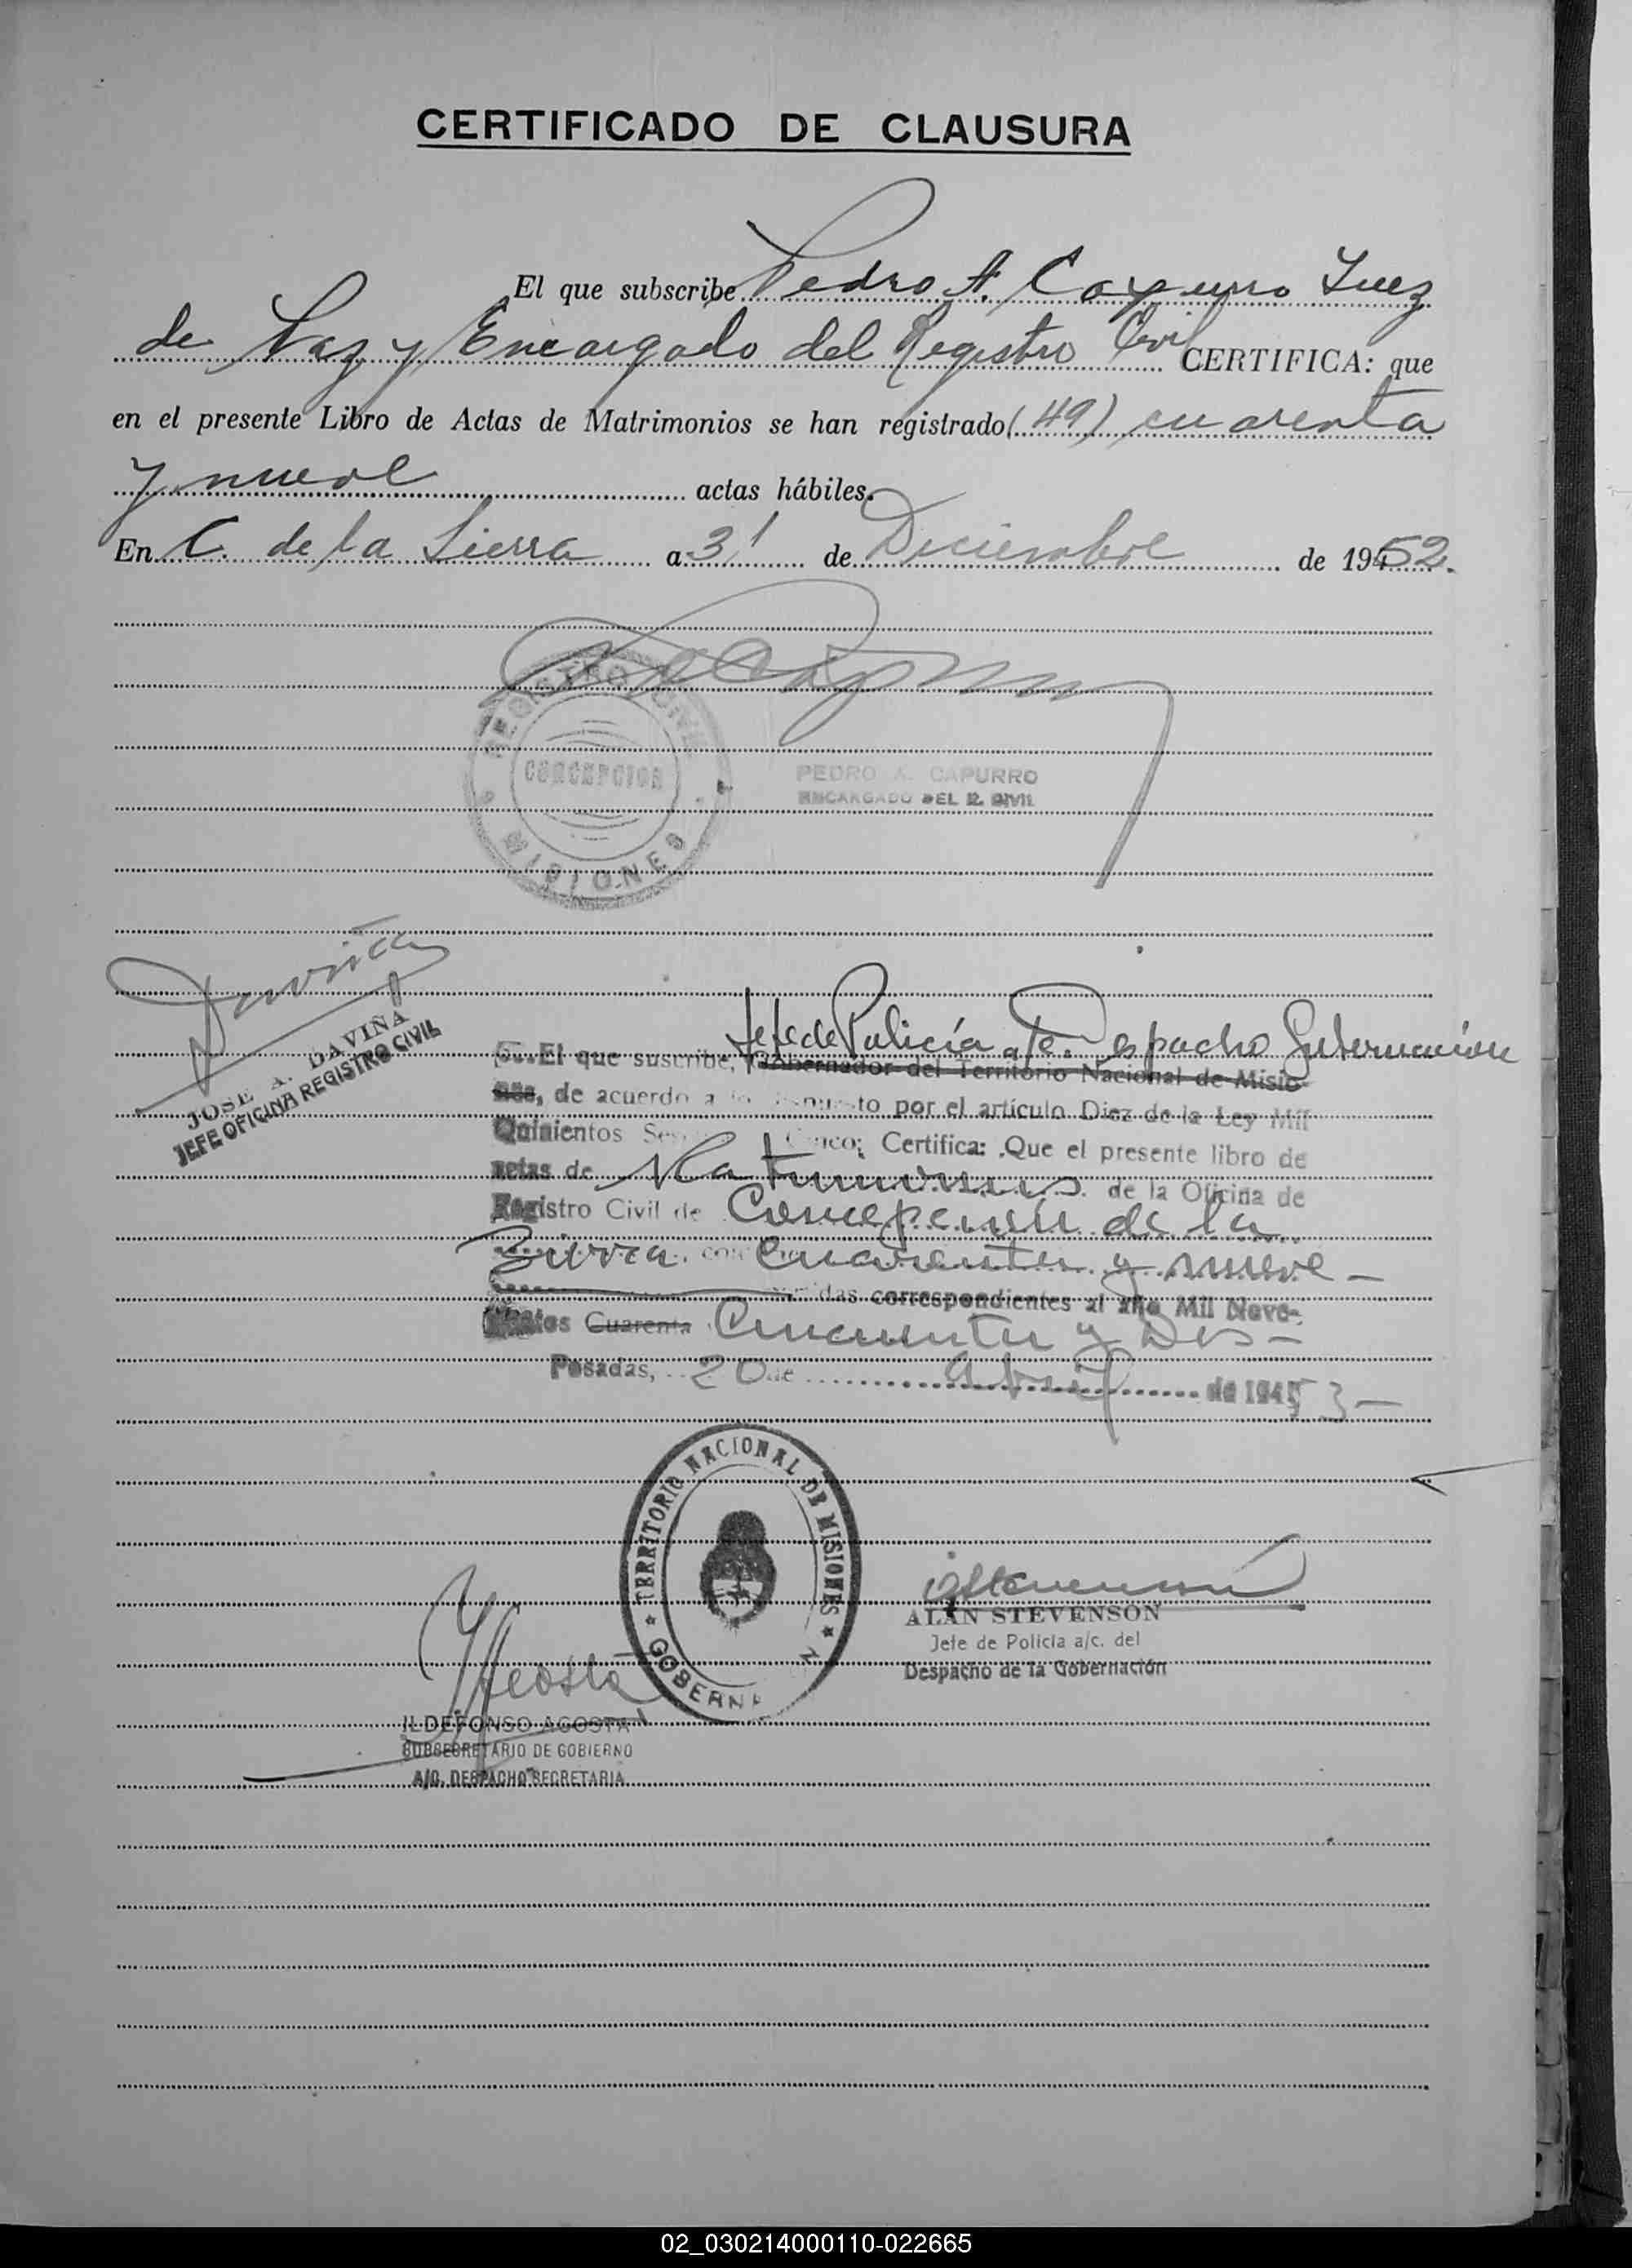 CERTIFICADO DE CLAUSURA
El que subscribe Pedro A. Capurro Juez
de Paz y Encargado del Registro Civil CERTIFICA: que
en el presente Libro de Actas de Matrimonios se han registrado (49) cuarenta
y nueve actas hábiles.
En C. de la Sierra a 31 de Diciembre de 1952.
REGISTRO CIVIL
CONCEPCION
MISIONES
PEDRO A. CAPURRO
ENCARGADO DEL R. CIVIL
Daviña
JOSE A. DAVIÑA
JEFE OFICINA REGISTRO CIVIL
Jefe de Policía a/c. Despacho Gobernación
El que suscribe, Gobernador del Territorio Nacional de Misio-
nes, de acuerdo a lo dispuesto por el artículo Diez de la Ley Mil
Quinientos Ses Cinco; Certifica: Que el presente libro de
actas de Matrimonios de la Oficina de
Registro Civil de Concepción de la
Sierra, con cuarenta y nueve
das correspondientes al año Mil Nove-
cientos Cuarenta Cincuenta y Dos
Posadas, 20 de Abril de 1953
TERRITORIO NACIONAL DE MISIONES
GOBERNA N
ALAN STEVENSON
Jefe de Policía a/c. del
Despacho de la Gobernación
Acosta
ILDEFONSO ACOSTA
SUBSECRETARIO DE GOBIERNO
A/C. DESPACHO SECRETARIA
02_030214000110-022665